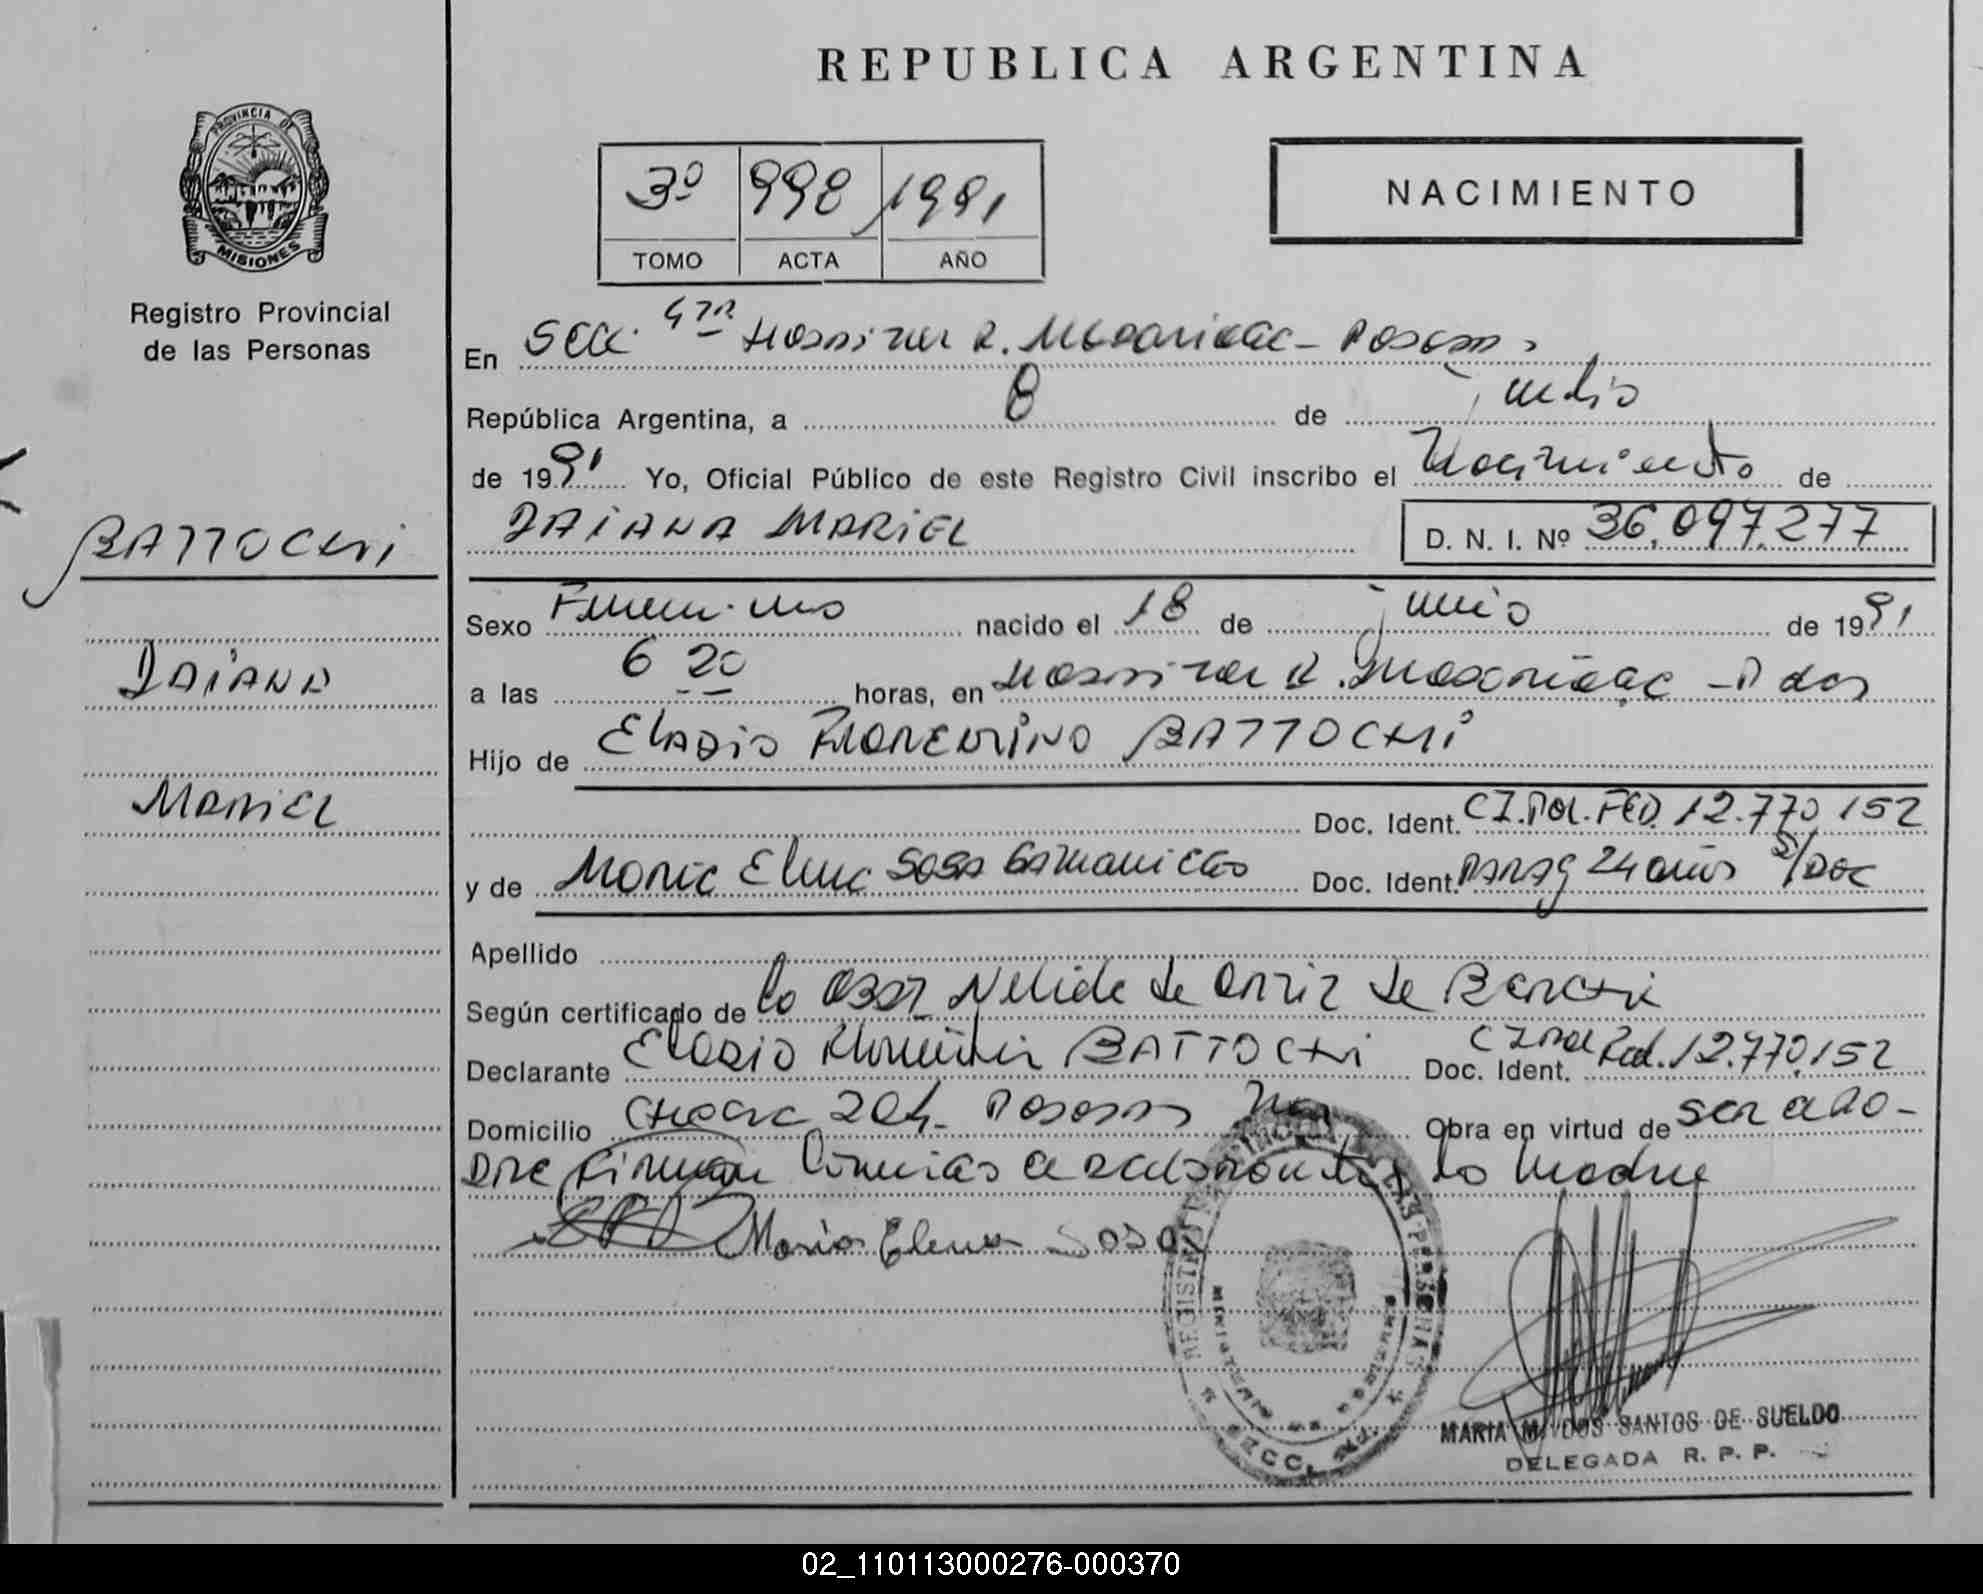 REPUBLICA ARGENTINA
PROVINCIA DE
MISIONES
Registro Provincial
de las Personas
3º 998 1991
TOMO ACTA AÑO
NACIMIENTO
En Secc. 4ta Hospital R. Madariaga - Posadas,
República Argentina, a 8 de julio
de 1991 Yo, Oficial Público de este Registro Civil inscribo el Nacimiento de
DAIANA MARIEL D. N. I. Nº 36.097.277
BATTOCHI
DAIANA
MARIEL
Sexo Femenino nacido el 18 de junio de 1991
a las 6 20 horas, en Hospital R. Madariaga - Pdas
Hijo de Eladio Florentino BATTOCHI
Doc. Ident. CI. Pol. FED. 12.770.152
y de Maria Elena SOSA Doc. Ident. PARAG 24 años S/Doc
Apellido
Según certificado de la Obst Nelida de Ortiz de
Declarante Eladio Florentino BATTOCHI Doc. Ident. CI Pol Fed. 12.770.152
Domicilio 204 - Posadas Mnes Obra en virtud de ser el Pa-
dre Firman la madre
Maria Elena Sosa
MARIA M. DOS SANTOS DE SUELDO
DELEGADA R. P. P.
02_110113000276-000370